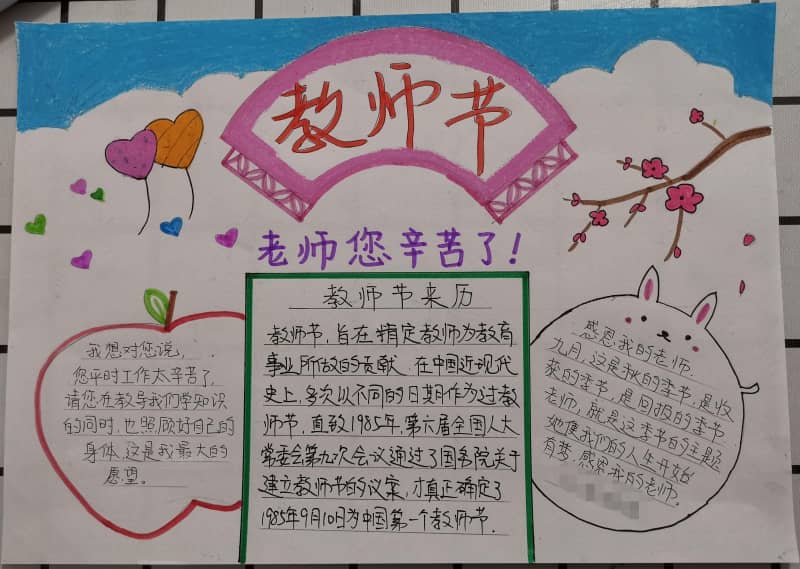 教师节
老师您辛苦了！
我想对您说，
您平时工作太辛苦了，
请您在教导我们学知识
的同时，也照顾好自己的
身体，这是我最大的
愿望。
教师节来历
教师节，旨在肯定教师为教育
事业所做的贡献．在中国近现代
史上，多次以不同的日期作为过教
师节，直致1985年，第六届全国人大
常委会第九次会议通过了国务院关于
建立教师节的议案，才真正确定了
1985年9月10日为中国第一个教师节．
感恩我的老师．
九月，这是秋的季节，是收
获的季节，是回报的季节
老师，就是这季节的主题
她使我们的人生开始
有梦．感恩我的老师．